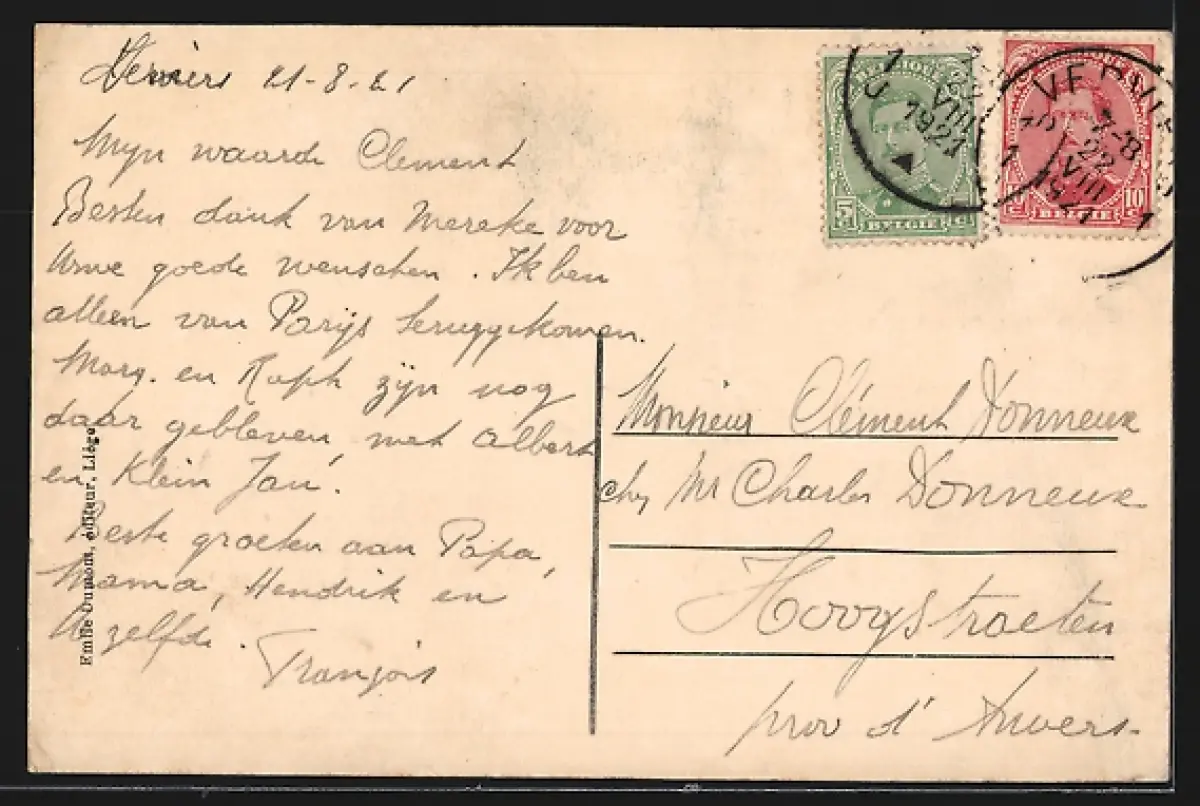 Verviers 21-8-21
Mijn waarde Clement
Besten dank van Mereke voor
Uwe goede wenschen. Ik ben
alleen van Parijs teruggekomen.
Marg. en Raph zijn nog
daar gebleven, met Albert
en Klein Jan.
Beste groeten aan Papa,
Mama, Hendrik en
Uzelfde.
François
Emile Dumont, éditeur, Liége
BELGIQUE
5
BELGIE
10
BELGIE
1
22
VIII
1921
VERVIE
7-8
22
VIII
1921
1
Monsieur Clément Donneux
chez Mr Charles Donneux
Hoogstraeten
prov d'Anvers.